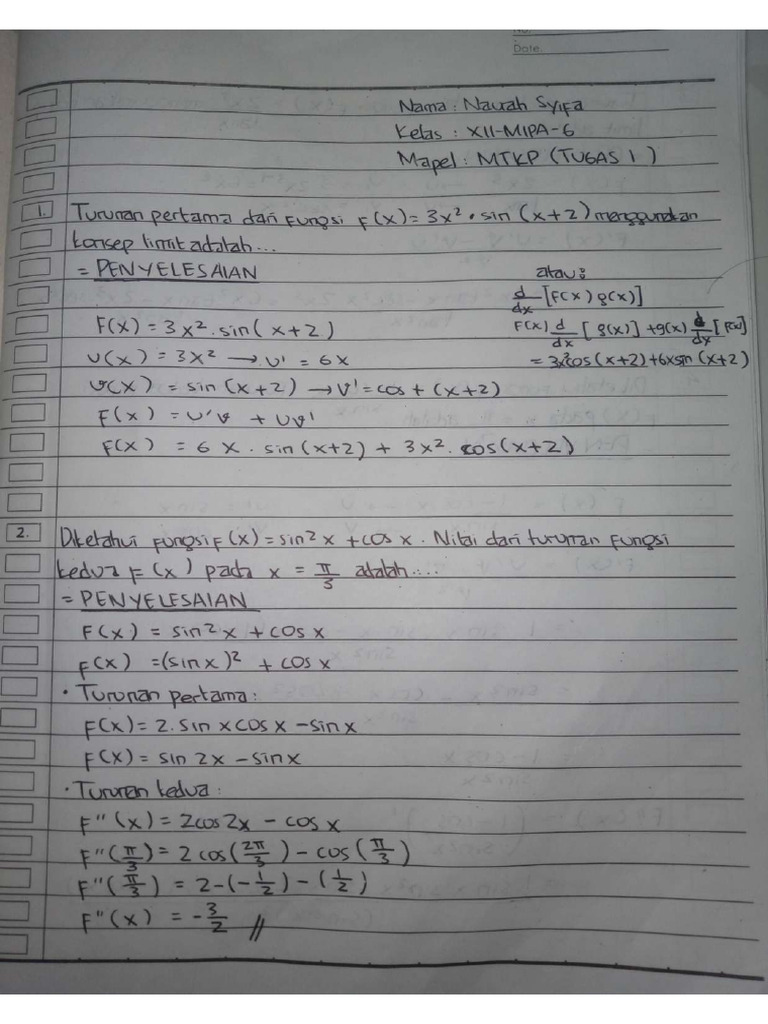 Date.
Nama : Naurah Syifa
Kelas : XII-MIPA-6
Mapel : MTKP (TUGAS 1)
1. Turunan pertama dari fungsi F(x) = 3x² • sin (x+2) menggunakan
konsep limit adalah...
= PENYELESAIAN
F(x) = 3x² . sin (x+2)
U(x) = 3x² → U' = 6x
v(x) = sin (x+2) → V' = cos + (x+2)
F(x) = U'v + Uv'
F(x) = 6 x . sin (x+2) + 3x² . cos (x+2)
atau :
d/dx [F(x) g(x)]
F(x) d/dx [g(x)] + g(x) d/dx [F(x)]
= 3x² cos (x+2) + 6x sin (x+2)
2. Diketahui fungsi F(x) = sin² x + cos x . Nilai dari turunan fungsi
kedua F(x) pada x = π/3 adalah....
= PENYELESAIAN
F(x) = sin² x + cos x
F(x) = (sin x)² + cos x
• Turunan pertama :
F(x) = 2 . sin x cos x - sin x
F(x) = sin 2x - sin x
• Turunan kedua :
F''(x) = 2cos 2x - cos x
F''(π/3) = 2 cos (2π/3) - cos (π/3)
F''(π/3) = 2 - (-1/2) - (1/2)
F''(x) = - 3/2 //